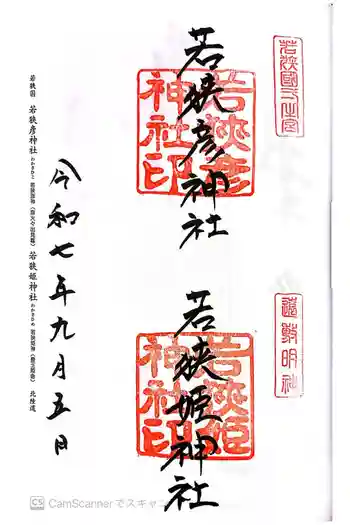 若狭國一之宮
遠敷明神
若狭彦神社
若狭彦
神社印
若狭姫神社
若狭姫
神社印
令和七年九月五日
若狭国 若狭彦神社 わかさひこ 若狭彦神(彦火々出見尊) 若狭姫神社 わかさひめ 若狭姫神(豊玉姫命) 北陸道
CamScannerでスキャン